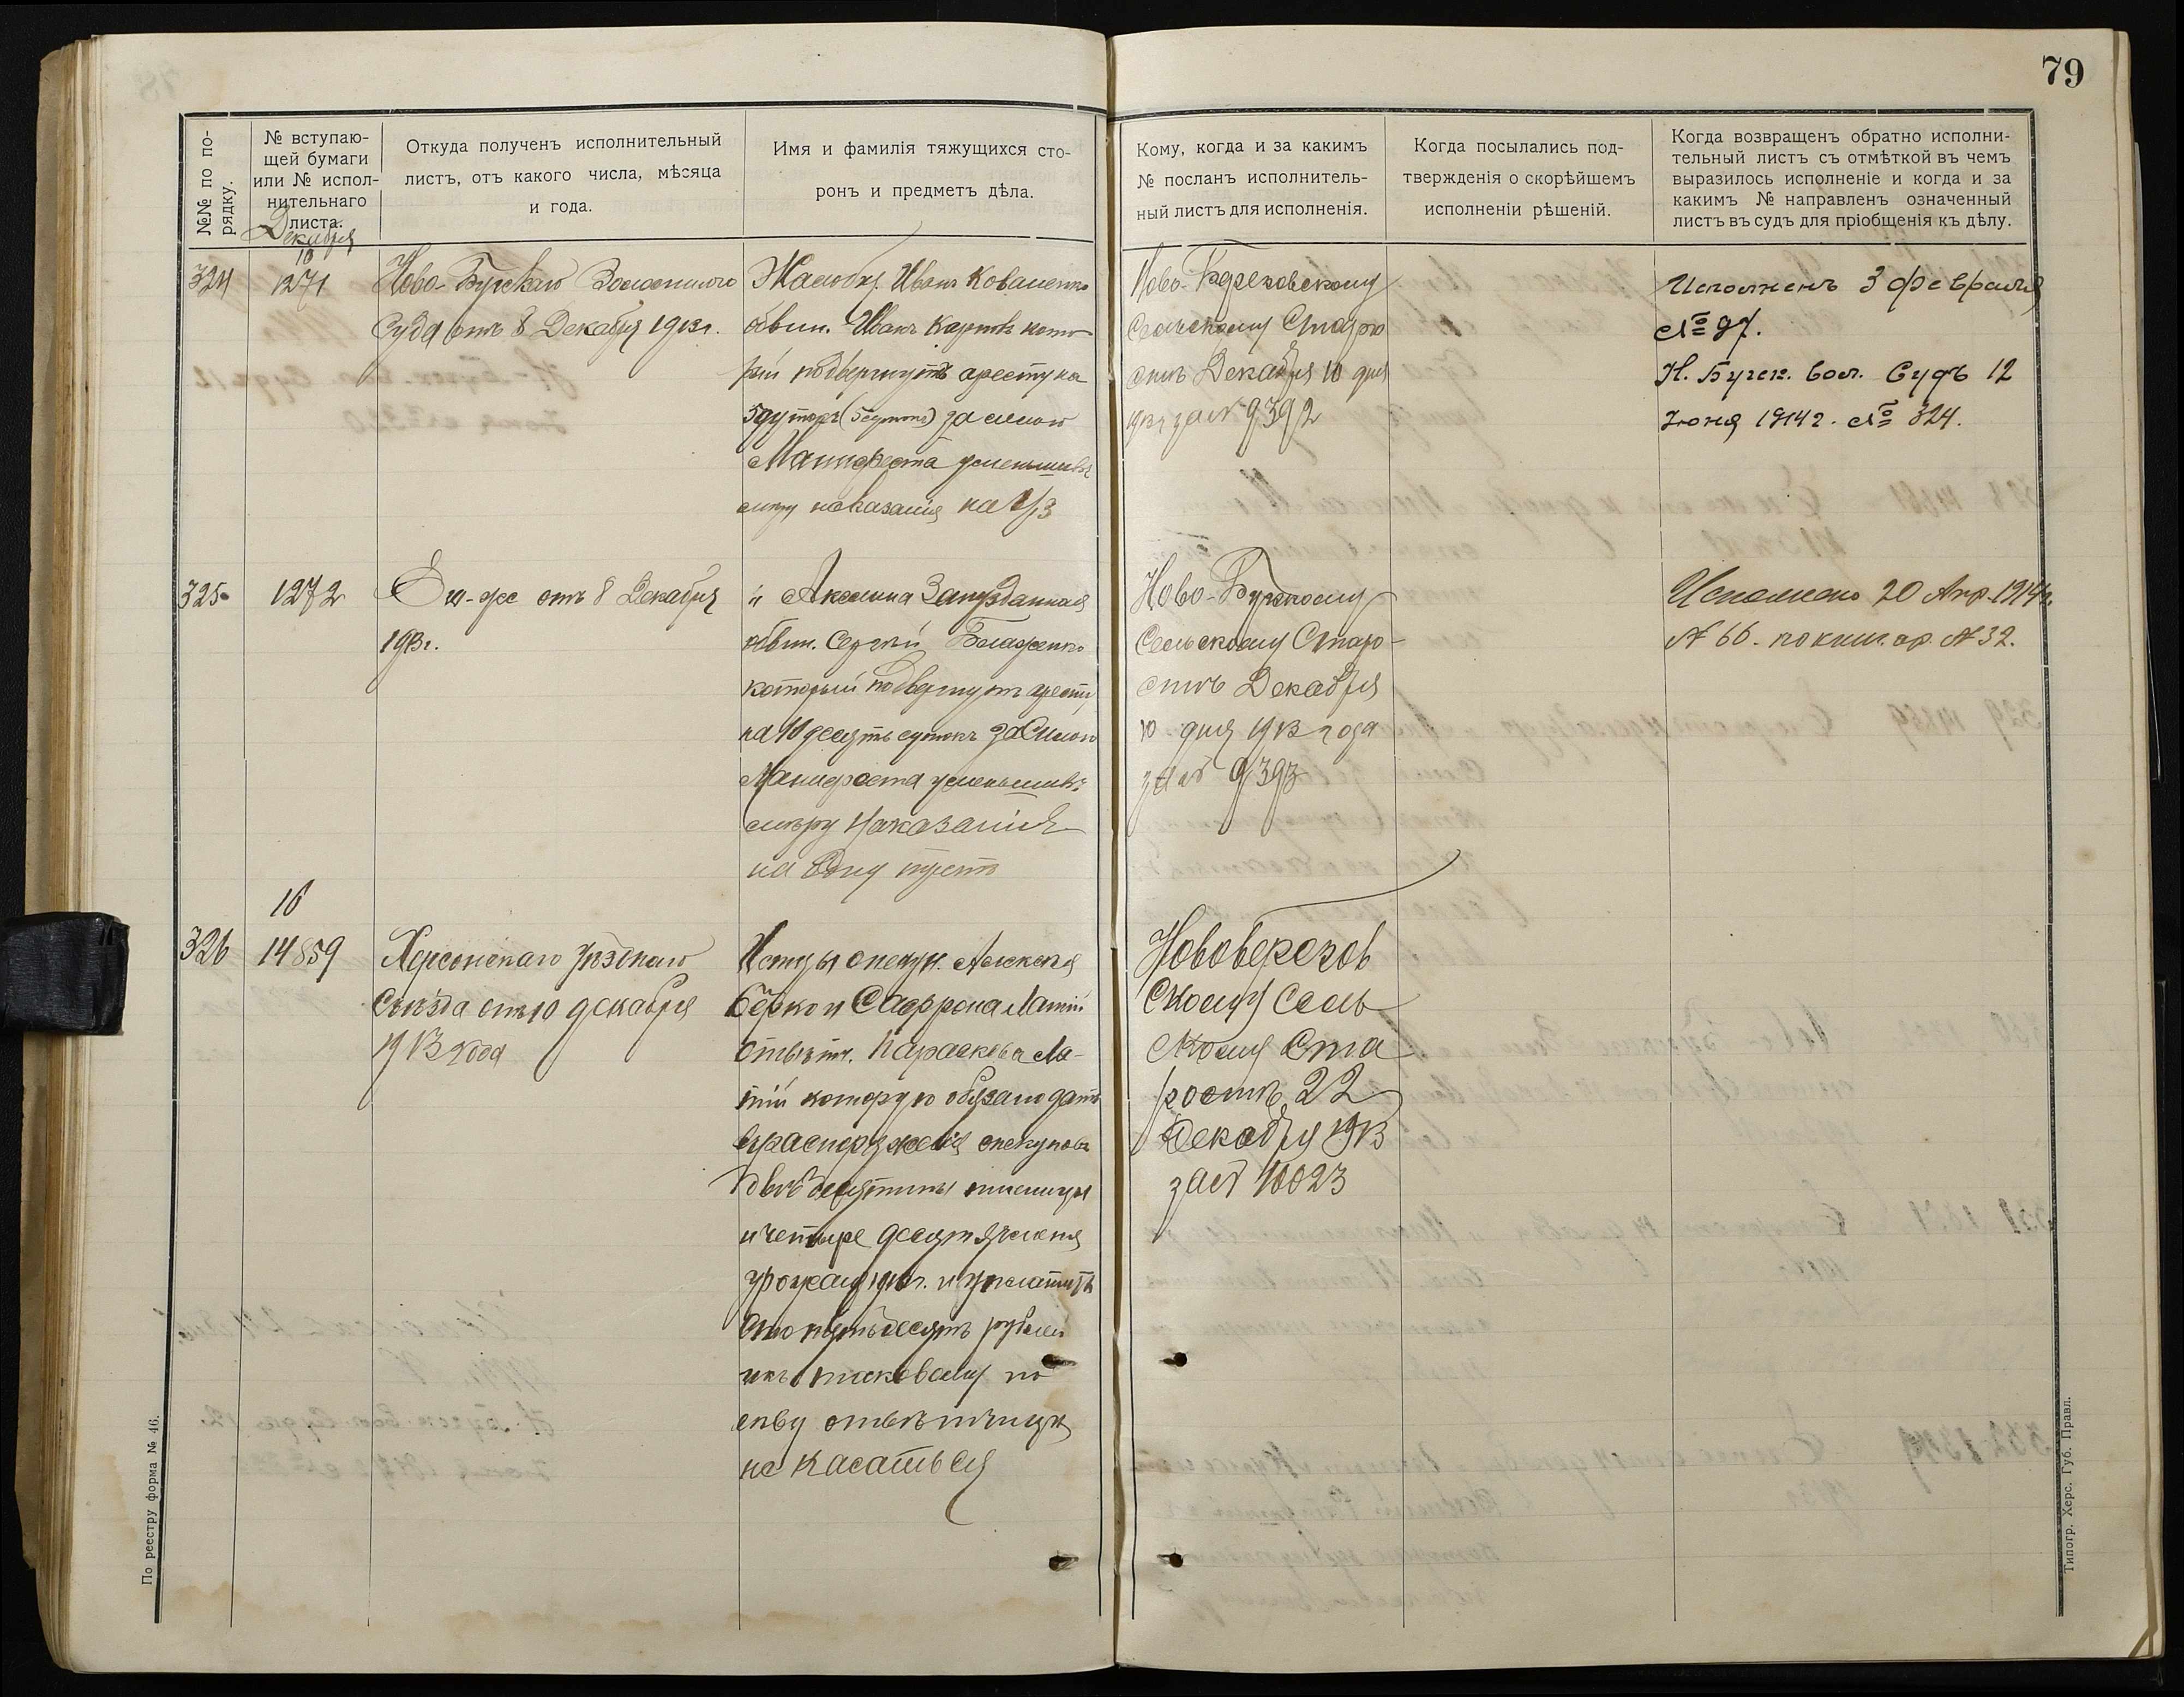 79
№№ по по-
рядку.
№ вступаю-
щей бумаги
или № испол-
нительнаго
листа.
Откуда полученъ исполнительный
листъ, отъ какого числа, мѣсяца
и года.
Имя и фамилія тяжущихся сто-
ронъ и предметъ дѣла.
Кому, когда и за какимъ
№ посланъ исполнитель-
ный листъ для исполненія.
Когда посылались под-
твержденія о скорѣйшемъ
исполненіи рѣшеній.
Когда возвращенъ обратно исполни-
тельный листъ съ отмѣткой въ чемъ
выразилось исполненіе и когда и за
какимъ № направленъ означенный
листъ въ судъ для пріобщенія къ дѣлу.
Декабря
10
324
1271
Ново-Бугскаго Волостного
Суда отъ 8 Декабря 1913г.
Жалобщ. Иванъ Коваленко
обвин. Иванъ Карповъ кото-
рый подвергнутъ аресту на
5 сутокъ (5 сутокъ) за силою
Манифеста уменьшивъ
мѣру наказанія на 1/3
Сельскому Старо
стѣ Декабря 10 дня
1913 за № 9392
Исполненъ 3 февраля
№ 97.
Н. Бугск. Вол. Судъ 12
Іюня 1914 г. № 324.
325
1272
отъ 8 Декабря
1913г.
Обвин. Сергѣй
который подвергнутъ аресту
на 10 десять сутокъ за силою
Манифеста уменьшивъ
мѣру наказанія
на одну треть
Ново-Бугскому
Сельскому Старо-
стѣ Декабря
10 дня 1913 года
за № 9393
Исполнено 20 Апр. 1914г.
№ 66. по книг. ар. № 32.
16
326
14859
Херсонскаго Уѣзднаго
Съѣзда отъ 10 декабря
1913 года
Истцы опекун. Алексѣя
отвѣтч. Параскева Ла-
тій которую обязано дать
въ распоряженіе опекуновъ
двѣ десятины пшеницы
и четыре десят. ячменя
урожая 1913г. и уплатить
сто пятьдесятъ рублей
отвѣтчицы
не касаться
Новоберезов
скому Сель
скому Ста
ростѣ 22
Декабря 1913
за № 10023
По реестру форма № 46.
Типогр. Херс. Губ. Правл.